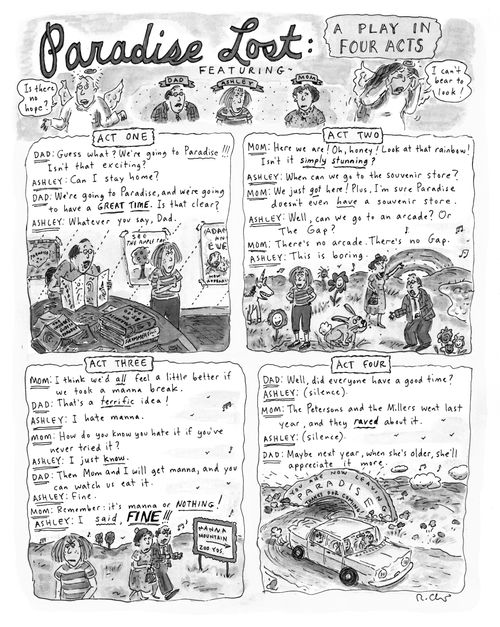 Paradise Lost:
A PLAY IN
FOUR ACTS
FEATURING~
DAD
ASHLEY
MOM
Is there
no
hope?
I can't
bear to
look!
ACT ONE
DAD: Guess what? We're going to Paradise!!!
Isn't that exciting?
ASHLEY: Can I stay home?
DAD: We're going to Paradise, and we're going
to have a GREAT TIME. Is that clear?
ASHLEY: Whatever you say, Dad.
SEE
THE APPLE TREE
ADAM
AN
EVE
ACT TWO
MOM: Here we are! Oh, honey! Look at that rainbow!
Isn't it simply stunning?
ASHLEY: When can we go to the souvenir store?
MOM: We just got here! Plus, I'm sure Paradise
doesn't even have a souvenir store.
ASHLEY: Well, can we go to an arcade? Or
The Gap?
MOM: There's no arcade. There's no Gap.
ASHLEY: This is boring.
ACT THREE
MOM: I think we'd all feel a little better if
we took a manna break.
DAD: That's a terrific idea!
ASHLEY: I hate manna.
MOM: How do you know you hate it if you've
never tried it?
ASHLEY: I just know.
DAD: Then Mom and I will get manna, and you
can watch us eat it.
ASHLEY: Fine.
MOM: Remember: it's manna or NOTHING!
ASHLEY: I said, FINE!!!
MANNA
MOUNTAIN
200 YDS.
ACT FOUR
DAD: Well, did everyone have a good time?
ASHLEY: (silence).
MOM: The Petersons and the Millers went last
year, and they raved about it.
ASHLEY: (silence).
DAD: Maybe next year, when she's older, she'll
appreciate it more.
YOU ARE NOW LEAVING
PARADISE
THANKS FOR COMING
R. Chast